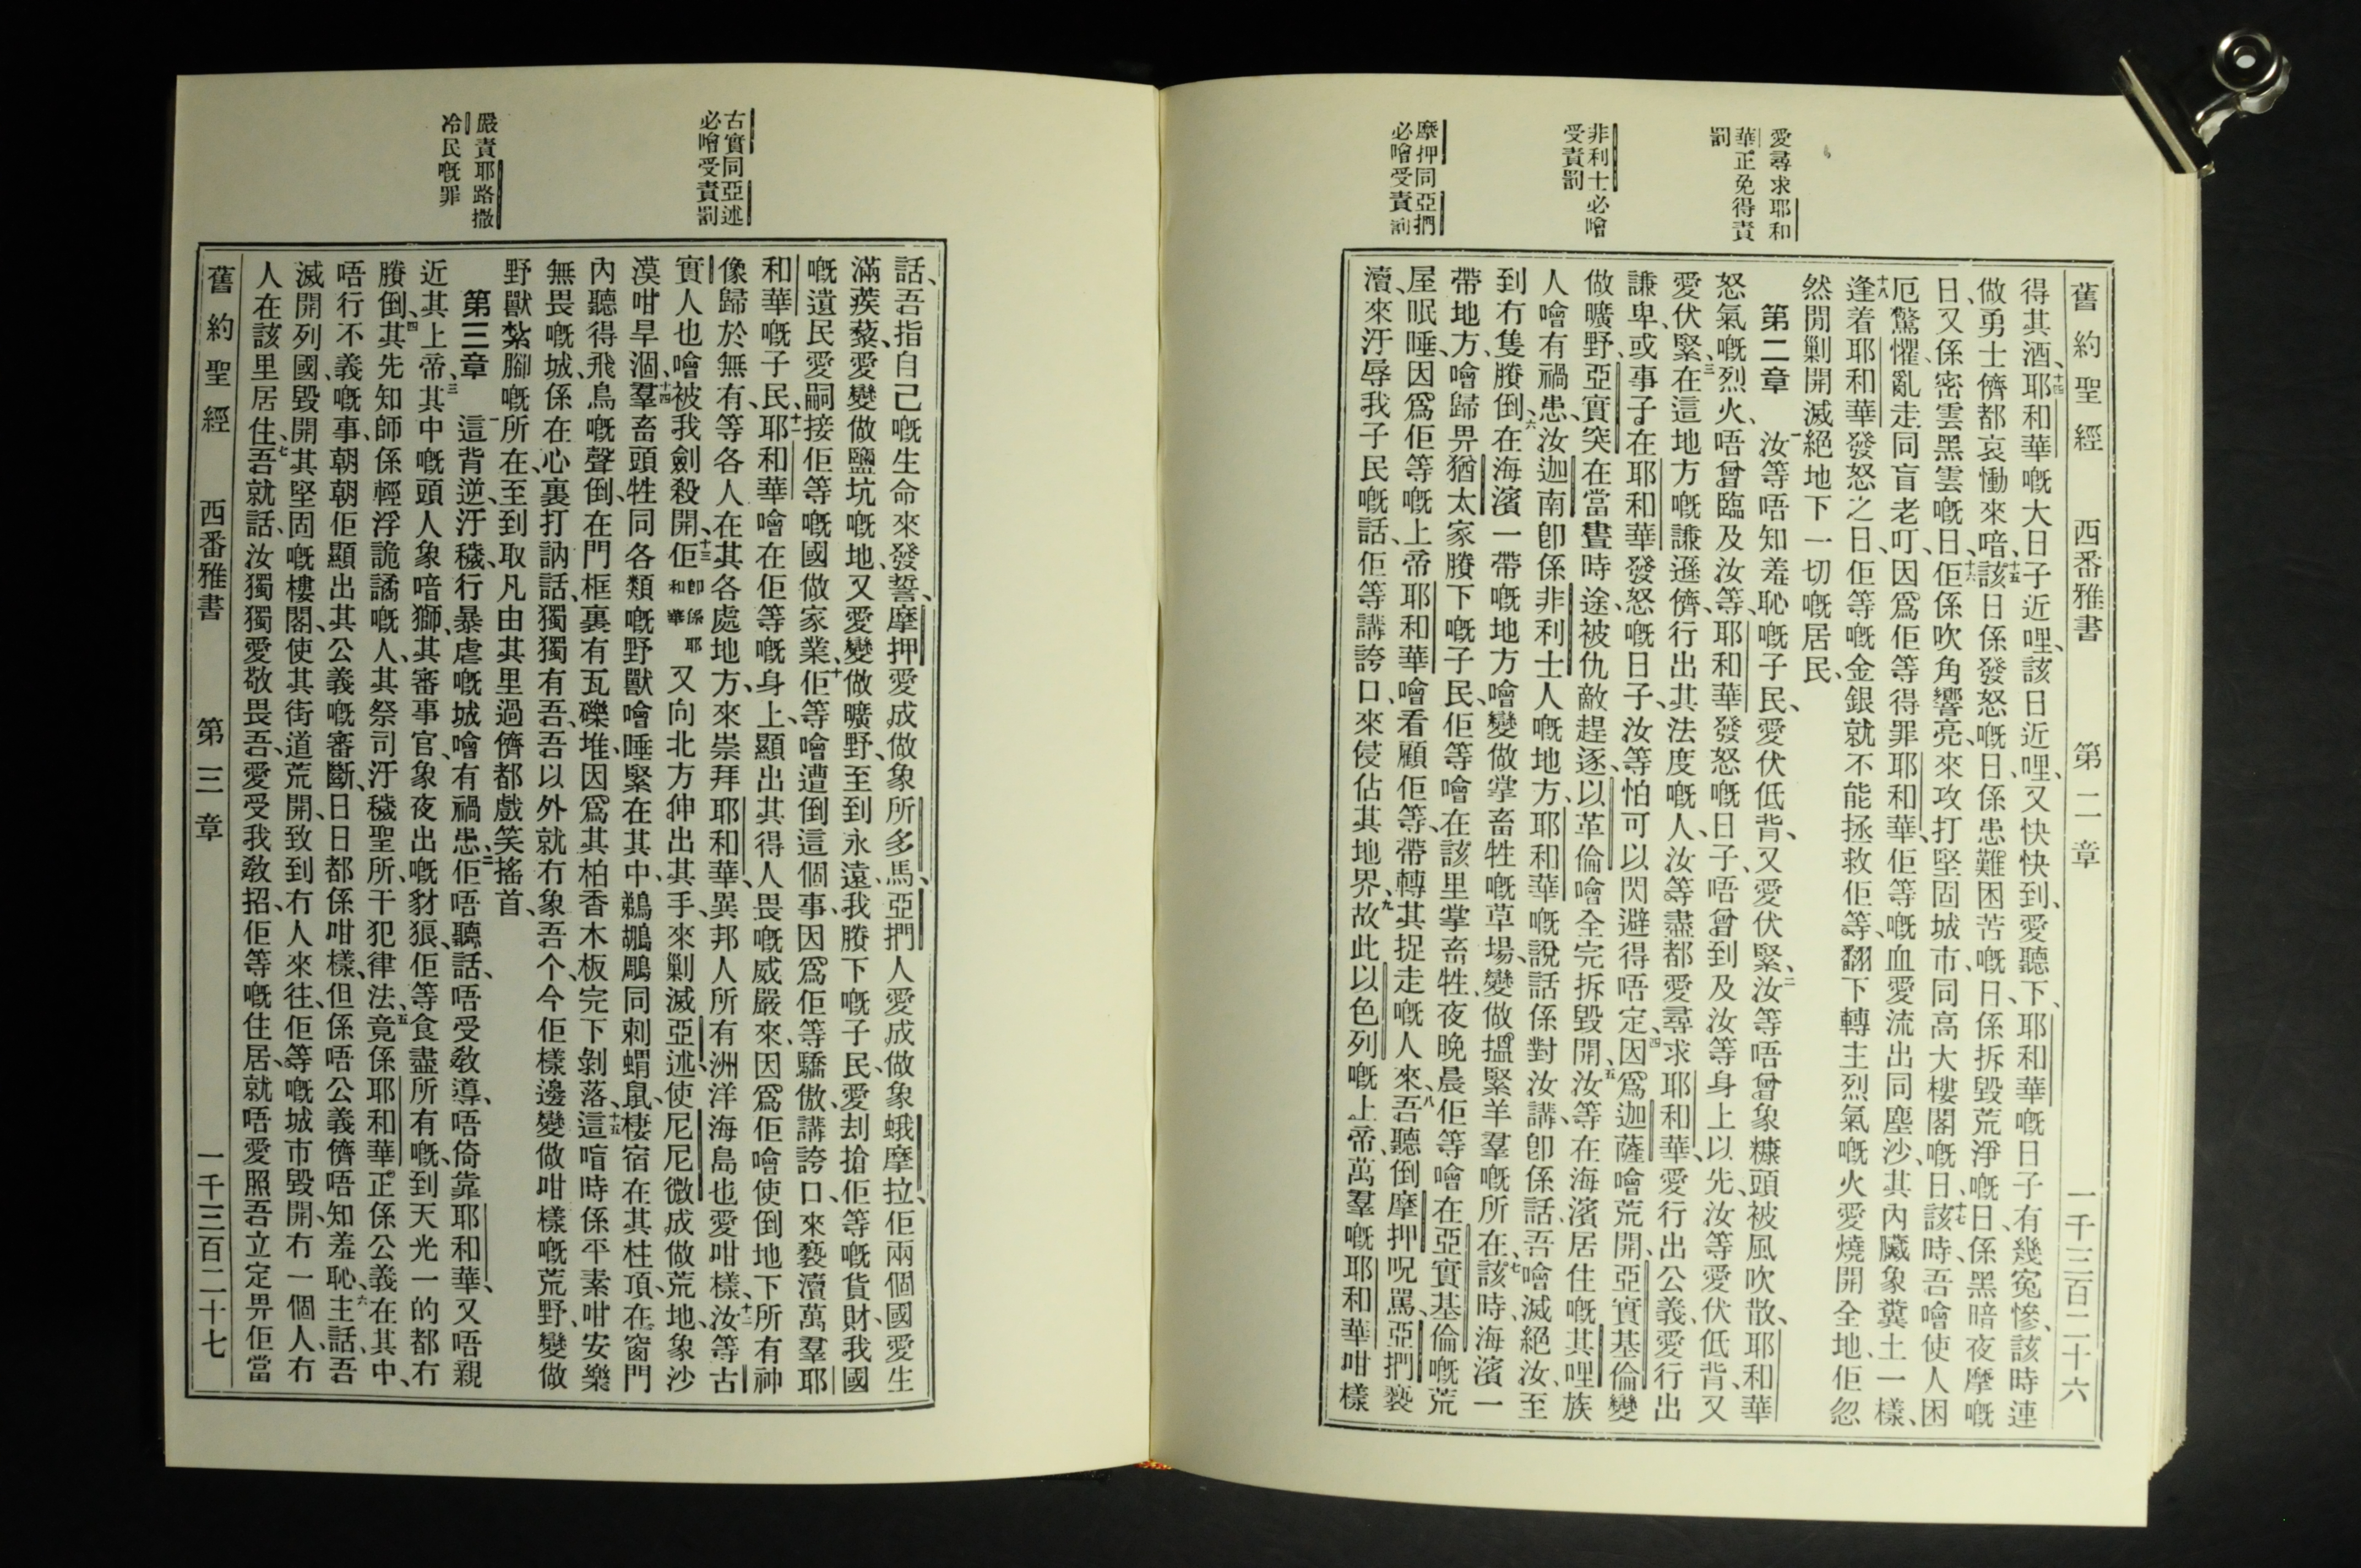 舊約聖經 西番雅書 第二章 一千三百二十六
愛尋求耶和
華正免得責
罰
非利士必噲
受責罰
摩押同亞捫
必噲受責罰
得其酒、十四耶和華嘅大日子近哩、該日近哩、又快快到、愛聽下、耶和華嘅日子有幾冤慘、該時連
做勇士儕都哀慟來喑、十五該日係發怒嘅日、係患難困苦嘅日、係拆毀荒淨嘅日、係黑暗夜摩嘅
日、又係密雲黑雲嘅日、十六佢係吹角響亮、來攻打堅固城市、同高大樓閣嘅日、十七該時、吾噲使人困
厄驚懼、亂走同盲老叮、因爲佢等得罪耶和華、佢等嘅血愛流出同塵沙、其內臟象糞土一樣、
十八逢着耶和華發怒之日、佢等嘅金銀就不能拯救佢等、翻下轉主烈氣嘅火愛燒開全地、佢忽
然閒剿開滅絕地下一切嘅居民、
第二章 一汝等唔知羞恥嘅子民、愛伏低背、又愛伏緊、二汝等唔曾象糠頭被風吹散、耶和華
怒氣嘅烈火、唔曾臨及汝等、耶和華發怒嘅日子、唔曾到及汝等身上以先、汝等愛伏低背、又
愛伏緊、三在這地方嘅謙遜儕、行出其法度嘅人、汝等盡都愛尋求耶和華、愛行出公義、愛行出
謙卑、或事子、在耶和華發怒嘅日子、汝等怕可以閃避得唔定、四因爲迦薩噲荒開、亞實基倫變
做曠野、亞實突在當晝時途、被仇敵趕逐、以革倫噲全完拆毀開、五汝等在海濱居住嘅其哩族
人噲有禍患、汝迦南卽係非利士人嘅地方、耶和華嘅說話係對汝講、卽係話、吾噲滅絕汝、至
到冇隻賸倒、六在海濱一帶嘅地方噲變做掌畜牲嘅草場、變做搵緊羊羣嘅所在、七該時、海濱一
帶地方、噲歸畀猶太家賸下嘅子民、佢等噲在該里掌畜牲、夜晚晨佢等噲在亞實基倫嘅荒
屋眠睡、因爲佢等嘅上帝耶和華噲看顧佢等、帶轉其捉走嘅人來、八吾聽倒摩押呪罵、亞捫褻
瀆、來汙辱我子民嘅話、佢等講誇口、來侵佔其地界、九故此以色列嘅上帝、萬羣嘅耶和華咁樣
古實同亞述
必噲受責罰
嚴責耶路撒
冷民嘅罪
話、吾指自己嘅生命來發誓、摩押愛成做象所多馬、亞捫人愛成做象蛾摩拉、佢兩個國愛生
滿蒺藜、愛變做鹽坑嘅地、又愛變做曠野、至到永遠、我賸下嘅子民、愛刦搶佢等嘅貨財、我國
嘅遺民愛嗣接佢等嘅國做家業、十佢等噲遭倒這個事、因爲佢等驕傲、講誇口、來褻瀆萬羣耶
和華嘅子民、十一耶和華噲在佢等嘅身上、顯出其得人畏嘅威嚴來、因爲佢噲使倒地下所有神
像歸於無有、等各人在其各處地方、來崇拜耶和華、異邦人所有洲洋海島也愛咁樣、十二汝等古
實人也噲被我劍殺開、十三佢卽係耶和華又向北方伸出其手、來剿滅亞述、使尼尼微成做荒地、象沙
漠咁旱涸、十四羣畜頭牲同各類嘅野獸噲睡緊在其中、鵜鶘鵰同刺蝟鼠、棲宿在其柱頂、在窗門
內聽得飛鳥嘅聲倒、在門框裏有瓦礫堆、因爲其柏香木板完下剝落、十五這喑時係平素咁安樂
無畏嘅城、係在心裏打訥話、獨獨有吾、吾以外就冇象吾个、今佢樣邊變做咁樣嘅荒野、變做
野獸紮腳嘅所在、至到取凡由其里過儕都戲笑搖首、
第三章 一這背逆、汙穢、行暴虐嘅城噲有禍患、二佢唔聽話、唔受敎導、唔倚靠耶和華、又唔親
近其上帝、三其中嘅頭人象喑獅、其審事官、象夜出嘅豺狼、佢等食盡所有嘅、到天光一的都冇
賸倒、四其先知師係輕浮詭譎嘅人、其祭司汙穢聖所、干犯律法、五竟係耶和華正係公義在其中、
唔行不義嘅事、朝朝佢顯出其公義嘅審斷、日日都係咁樣、但係唔公義儕唔知羞恥、六主話、吾
滅開列國、毀開其堅固嘅樓閣、使其街道荒開、致到冇人來往、佢等嘅城市毀開、冇一個人、冇
人在該里居住、七吾就話、汝獨獨愛敬畏吾、愛受我敎招、佢等嘅住居、就唔愛照吾立定畀佢當
舊約聖經 西番雅書 第三章 一千三百二十七